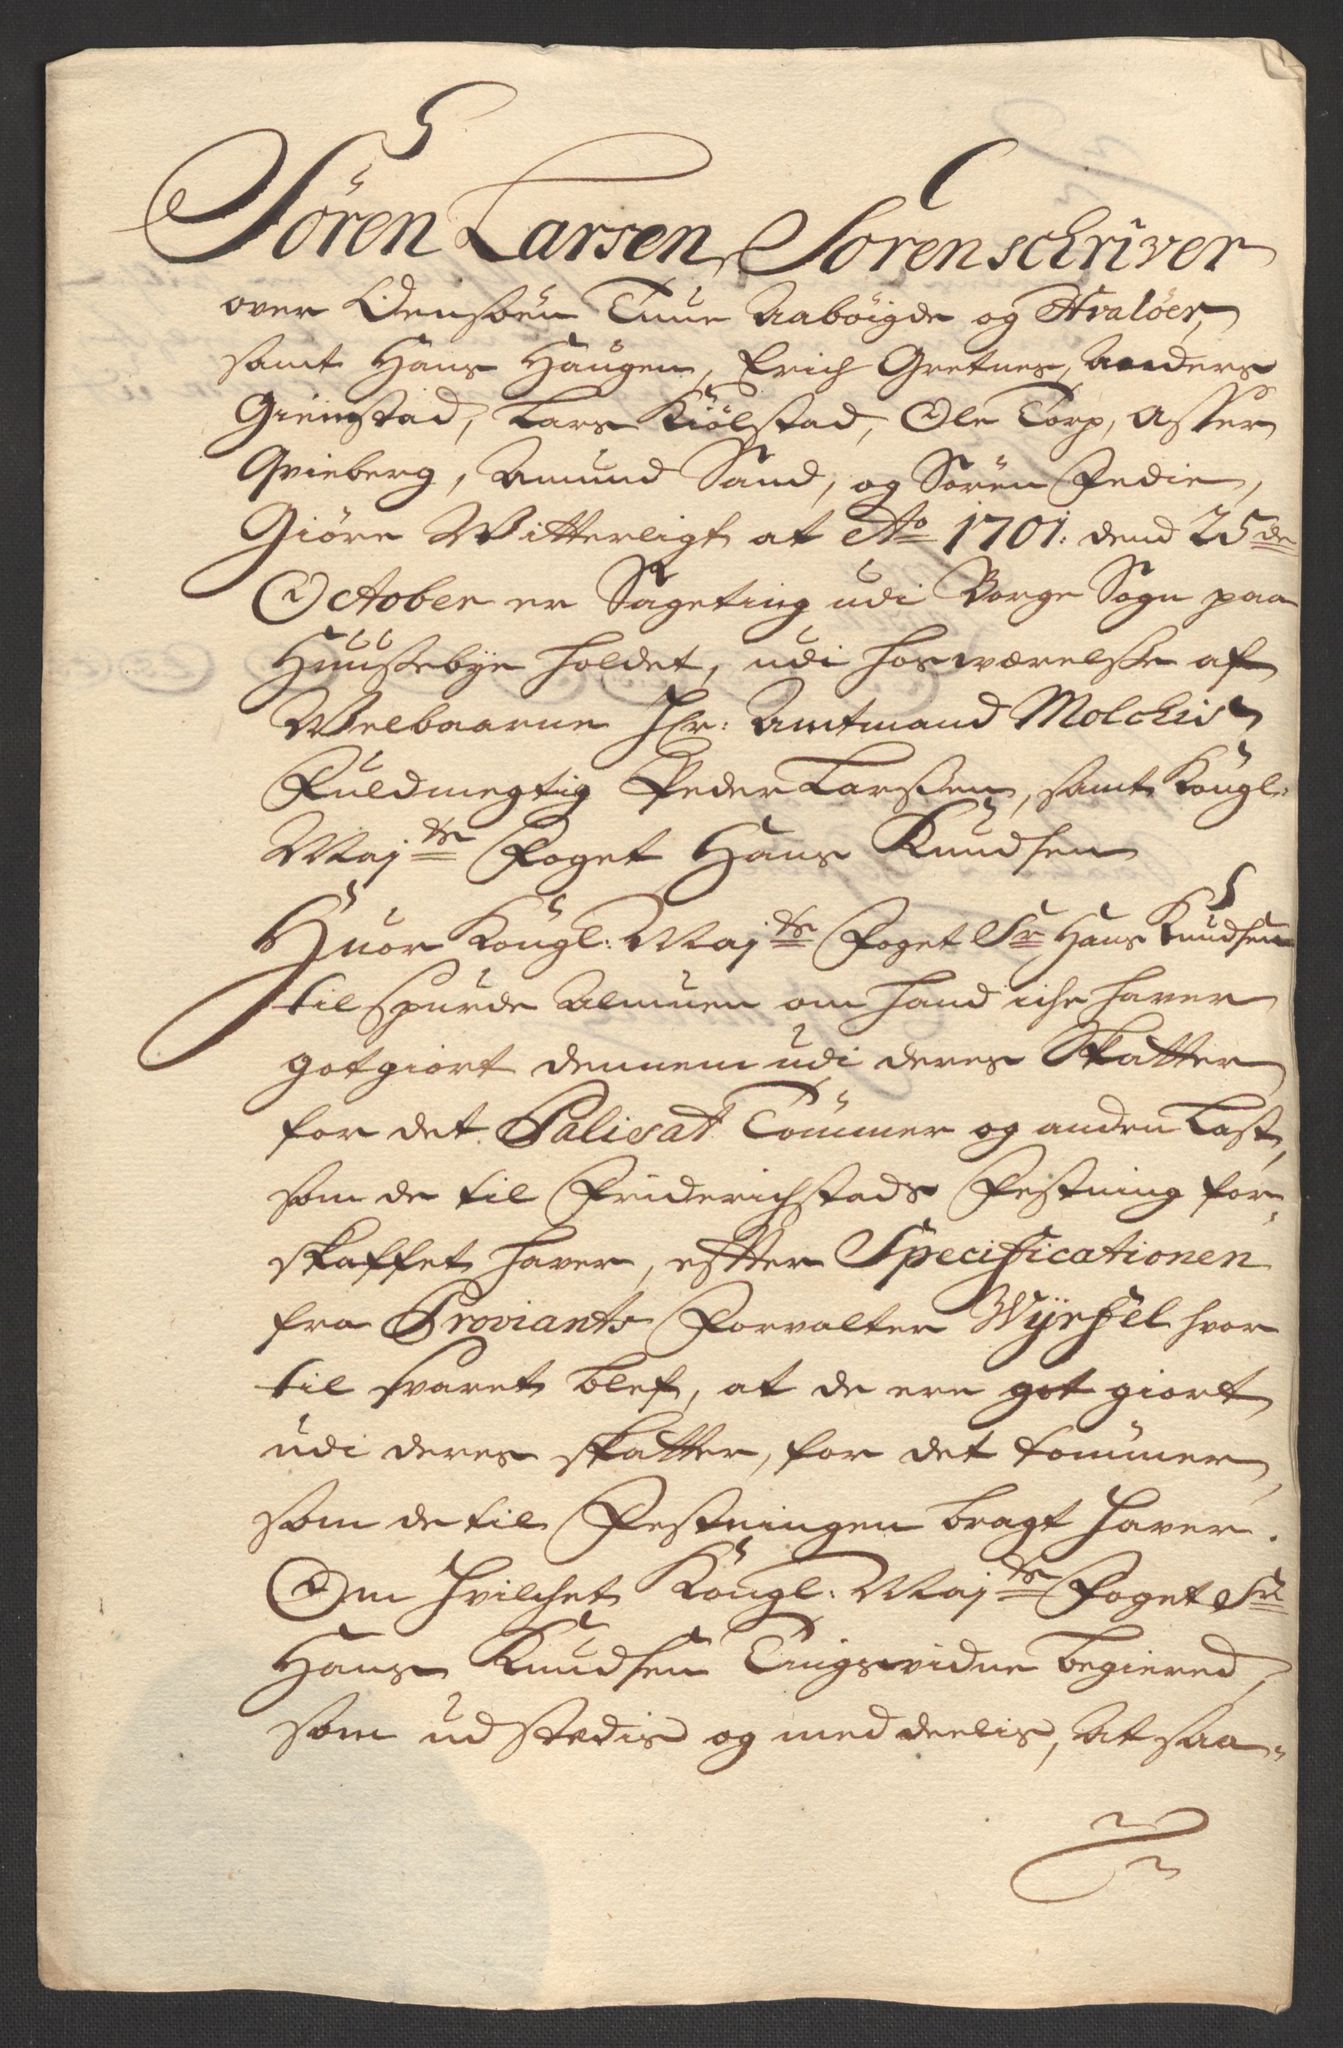 Sören Larsen, Sorenschriver
over Odensöen Tuue Aaböigde og Hvalöer,
samt Hans Haugen, Erich Gretnes, Anders
Giemstad, Lars Kiölstad, Ole Torp, Asser
Qvieberg, Amund Sand, og Sören Fedie,
Giöre Witterligt at Ao 1701: dend 25de
October er Sageting udi Borge Sogn paa
Huussebye holdet, udi hoswærelsse af
Welbaarne Hr: Amtmand Molchis
Fuldmegtig Peder Larssen, samt Kongl:
Majts Foget Hans Knudsen
Huor Kongl: Majts Foget Sr Hans Knudsen
til spurde Almuen om hand iche haver
gotgiort dennem udi deres Skatter
for det Palisat Tömmer og anden Last,
som de til Friderichstads Festning for-
skaffet haver, effter Specificationen
fra Proviants Forvalter Wyrfel hvor
til svaret blef, at de ere got giort
udi deres skatter, for det tömmer,
som de til Festningen bragt haver.
Om hvilchet Kongl: Majts Foget Sr
Hans Knudsen Tingsvidne begiered,
som udstædis og meddeelis, At saa-